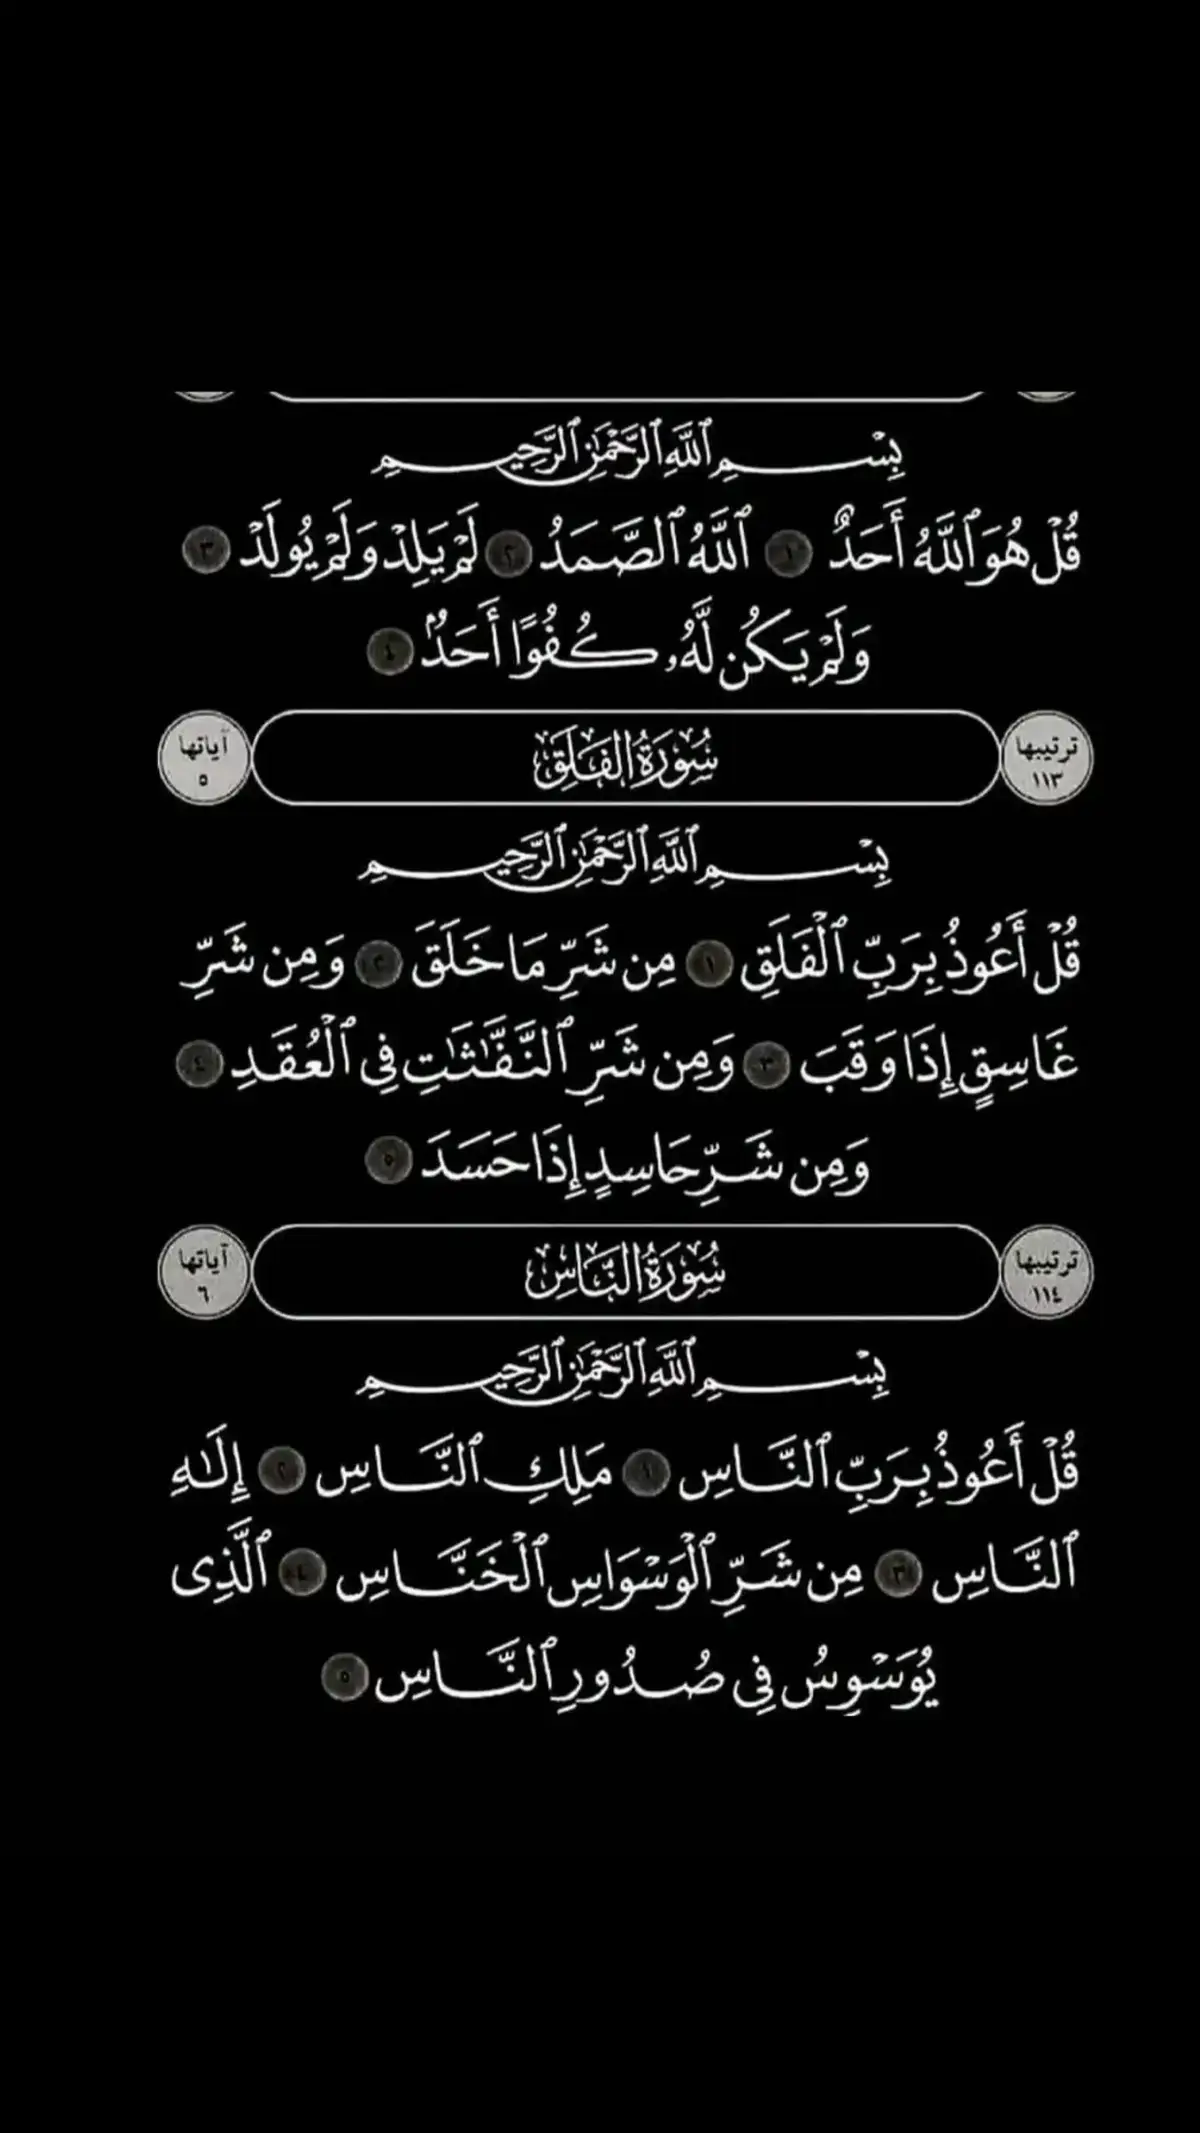 بِسْمِ ٱللَّهِ ٱلرَّحْمَٰنِ ٱلرَّحِيمِ
قُلْ هُوَ ٱللَّهُ أَحَدٌ ١ ٱللَّهُ ٱلصَّمَدُ ٢ لَمْ يَلِدْ وَلَمْ يُولَدْ ٣
وَلَمْ يَكُن لَّهُۥ كُفُوًا أَحَدٌۢ ٤
ترتيبها ١١٣ سُورَةُ الفَلَقِ آياتها ٥
بِسْمِ ٱللَّهِ ٱلرَّحْمَٰنِ ٱلرَّحِيمِ
قُلْ أَعُوذُ بِرَبِّ ٱلْفَلَقِ ١ مِن شَرِّ مَا خَلَقَ ٢ وَمِن شَرِّ
غَاسِقٍ إِذَا وَقَبَ ٣ وَمِن شَرِّ ٱلنَّفَّٰثَٰتِ فِى ٱلْعُقَدِ ٤
وَمِن شَرِّ حَاسِدٍ إِذَا حَسَدَ ٥
ترتيبها ١١٤ سُورَةُ النَّاسِ آياتها ٦
بِسْمِ ٱللَّهِ ٱلرَّحْمَٰنِ ٱلرَّحِيمِ
قُلْ أَعُوذُ بِرَبِّ ٱلنَّاسِ ١ مَلِكِ ٱلنَّاسِ ٢ إِلَٰهِ
ٱلنَّاسِ ٣ مِن شَرِّ ٱلْوَسْوَاسِ ٱلْخَنَّاسِ ٤ ٱلَّذِى
يُوَسْوِسُ فِى صُدُورِ ٱلنَّاسِ ٥